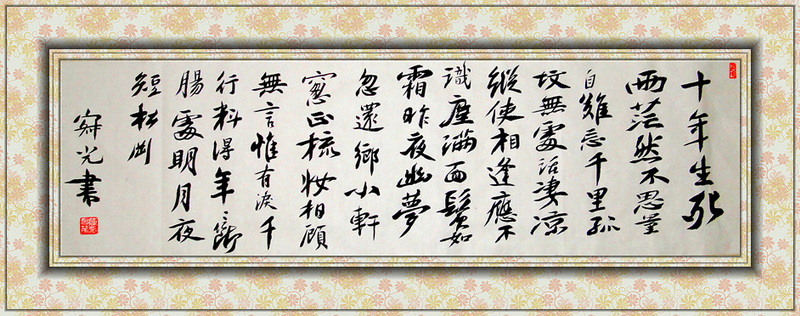 十年生死
兩茫然不思量
自難忘千里孤
坟無處話凄凉
縱使相逢應不
識塵滿面鬢如
霜昨夜幽夢
忽還鄉小軒
窗正梳妝相顧
無言惟有淚千
行料得年々斷
腸處明月夜
短松岡
光書